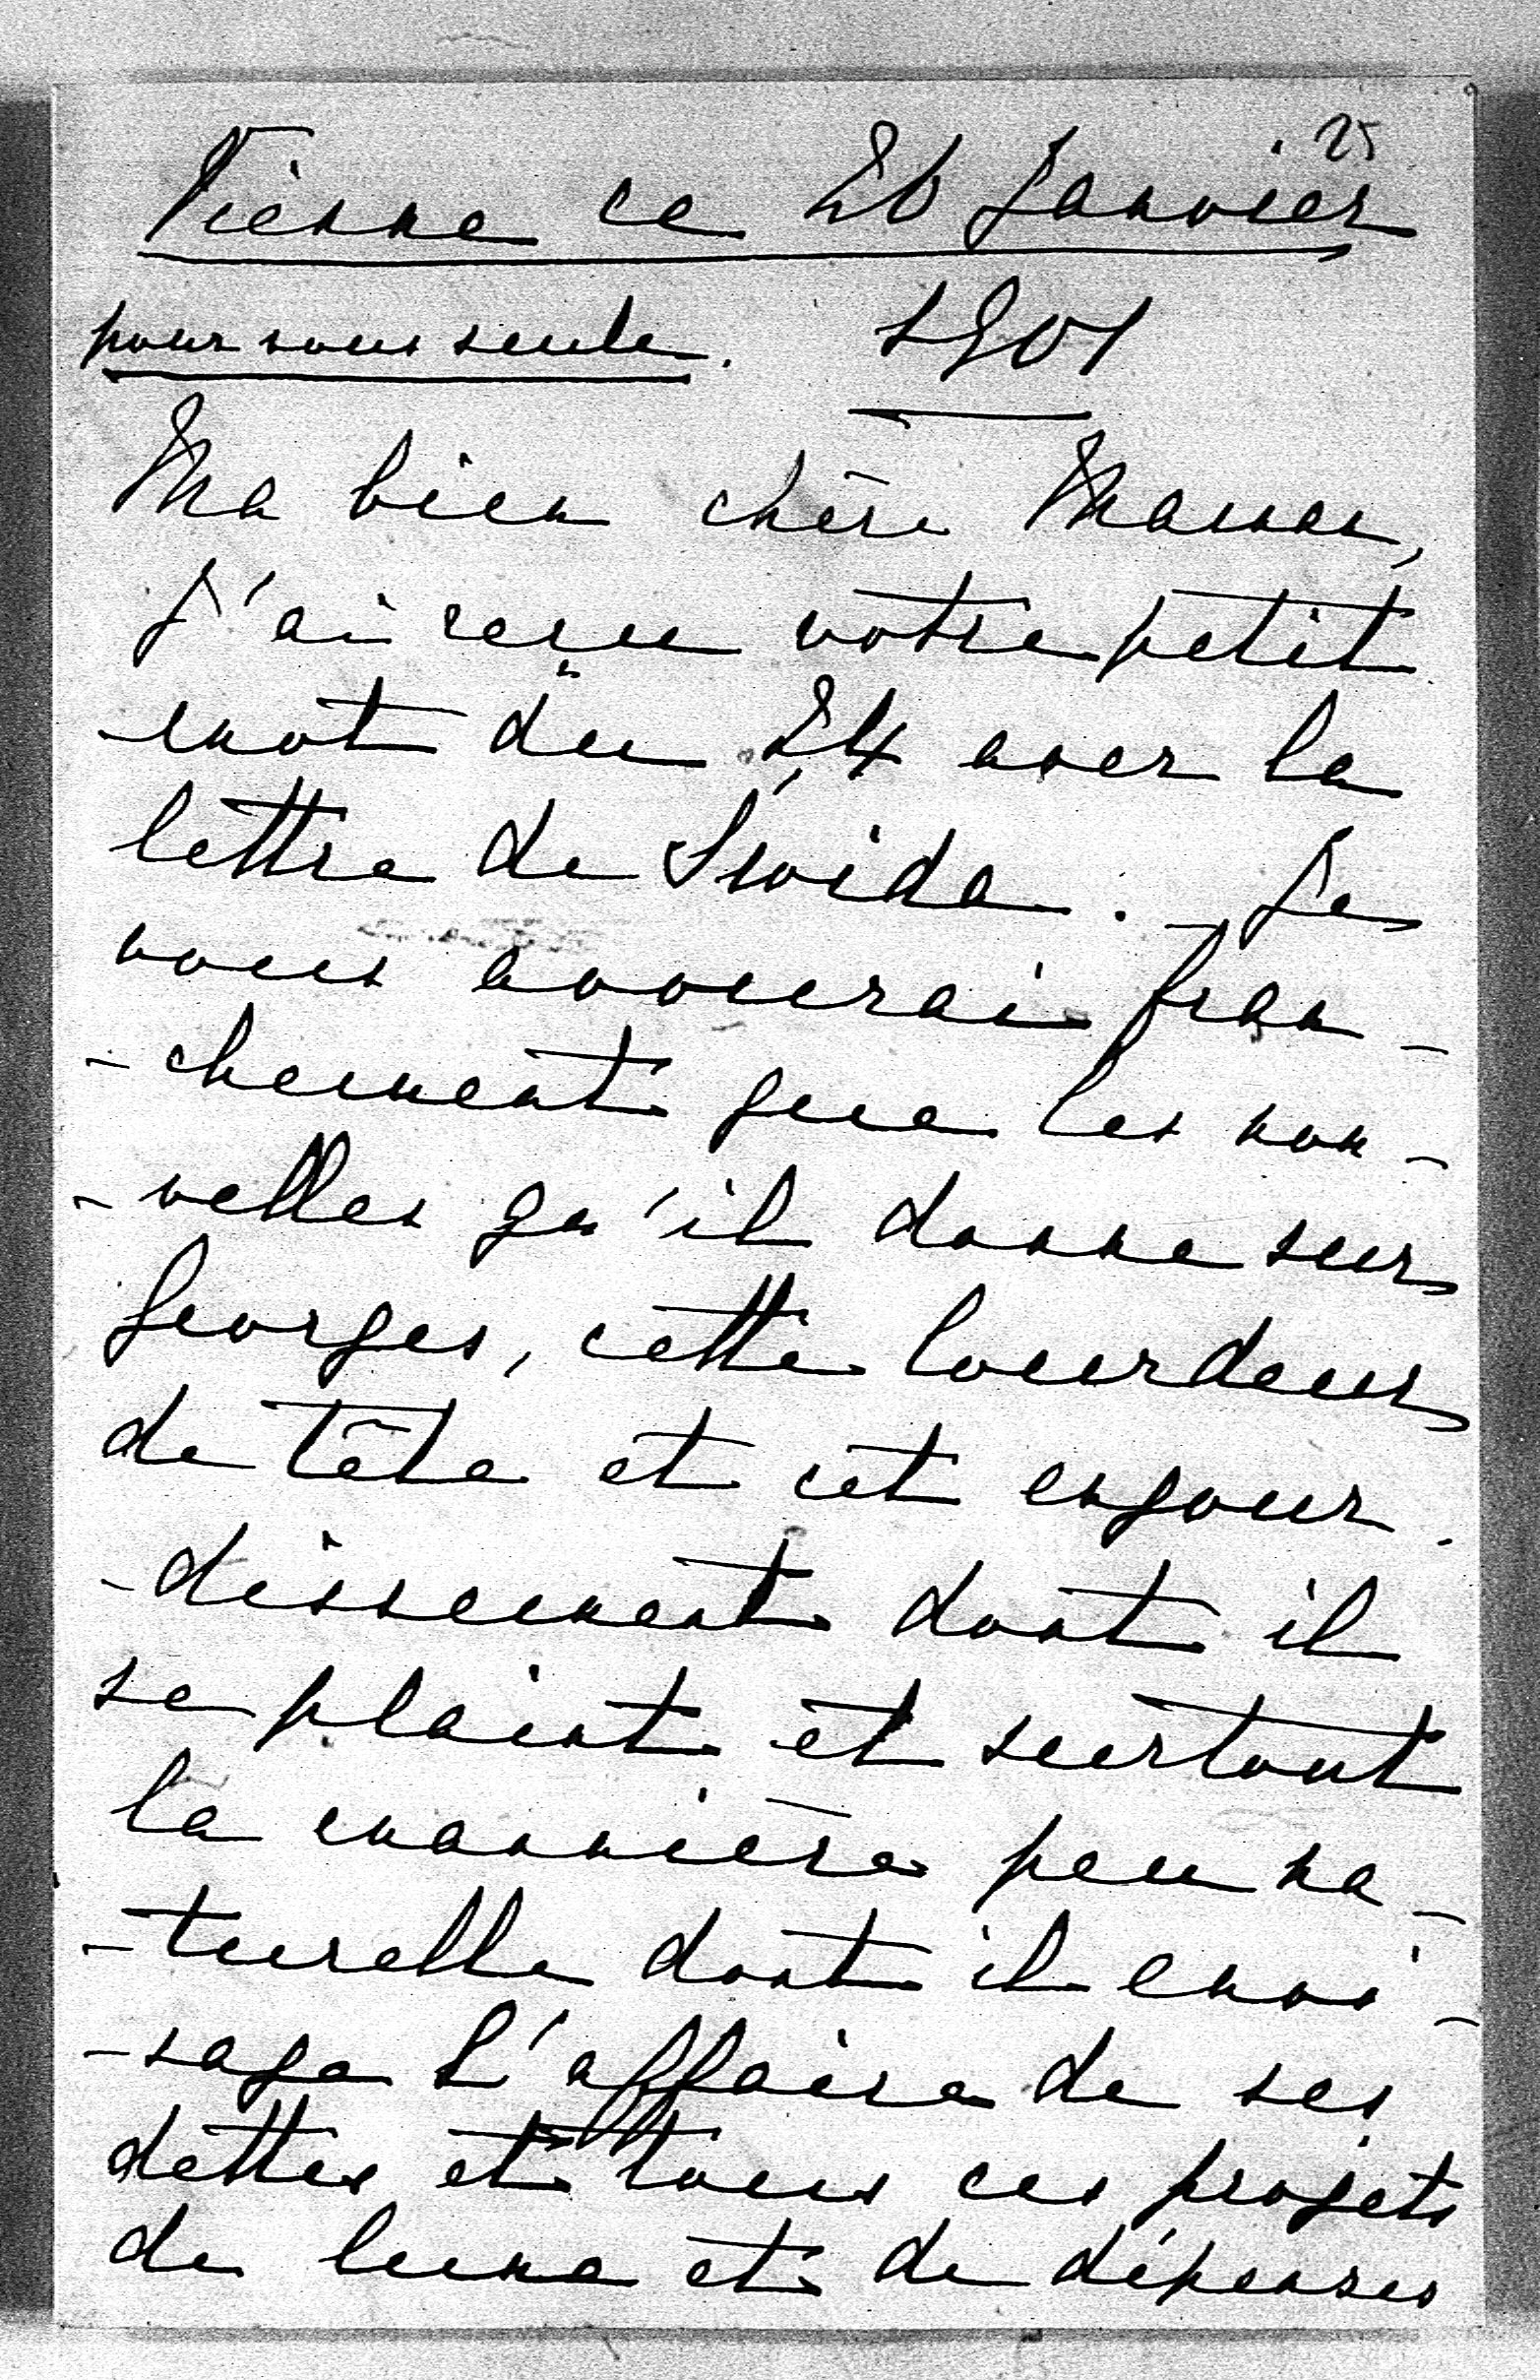 25
Vienne ce 26 Janvier
pour vous seule. 1901
Ma bien chère Maman,
J'ai reçu votre petit
mot du 24 avec la
lettre de Swida. Je
vous avouerai fran-
-chement que les nou-
-velles qu'il donne sur
Georges, cette lourdeur
de tête et cet engour-
-dissement dont il
se plaint et surtout
la mannière peu na-
-turelle dont il envi-
-sage l'affaire de ses
dettes et tous ces projets
de luxe et de dépenses